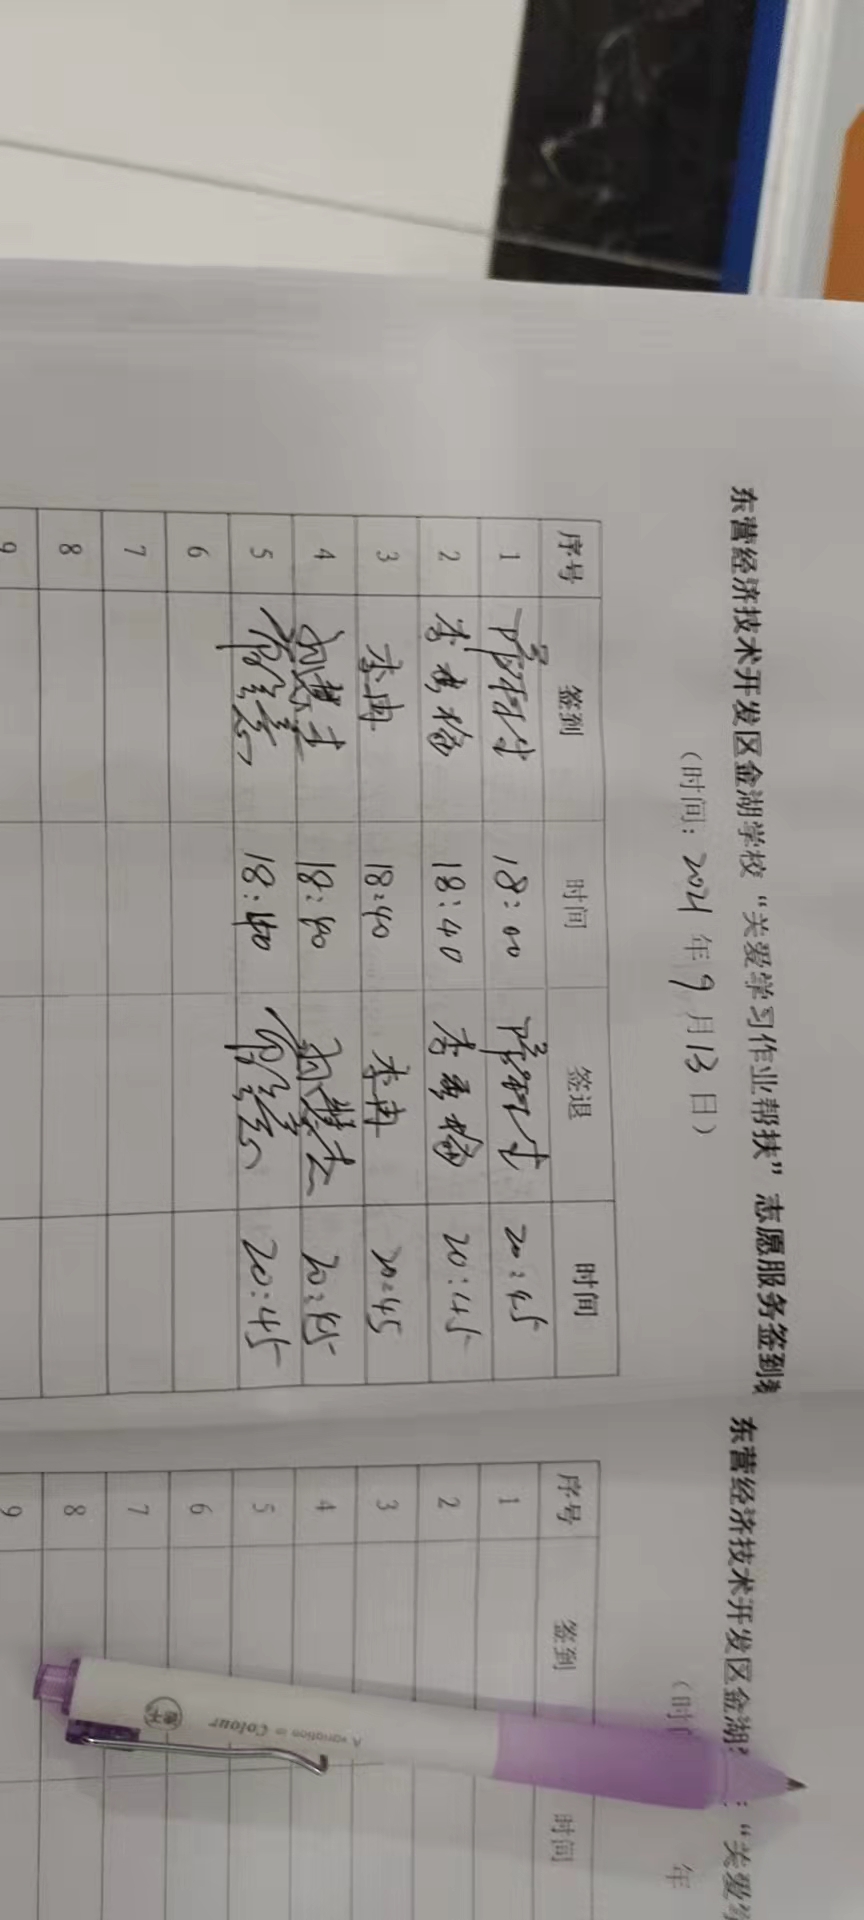 东营经济技术开发区金湖学校“关爱学习作业帮扶”志愿服务签到
（时间：2021年9月13日）
序号 签到 时间 签退 时间
1 18:00 20:45
2 李秀梅 18:40 李秀梅 20:45
3 李冉 18:40 李冉 20:45
4 18:40 20:45
5 18:40 20:45
6
7
8
9
东营经济技术开发区金湖 “关爱
（时 年
序号 签到 时间
1
2
3
4
5
6
7
8
9
A variation in Colour